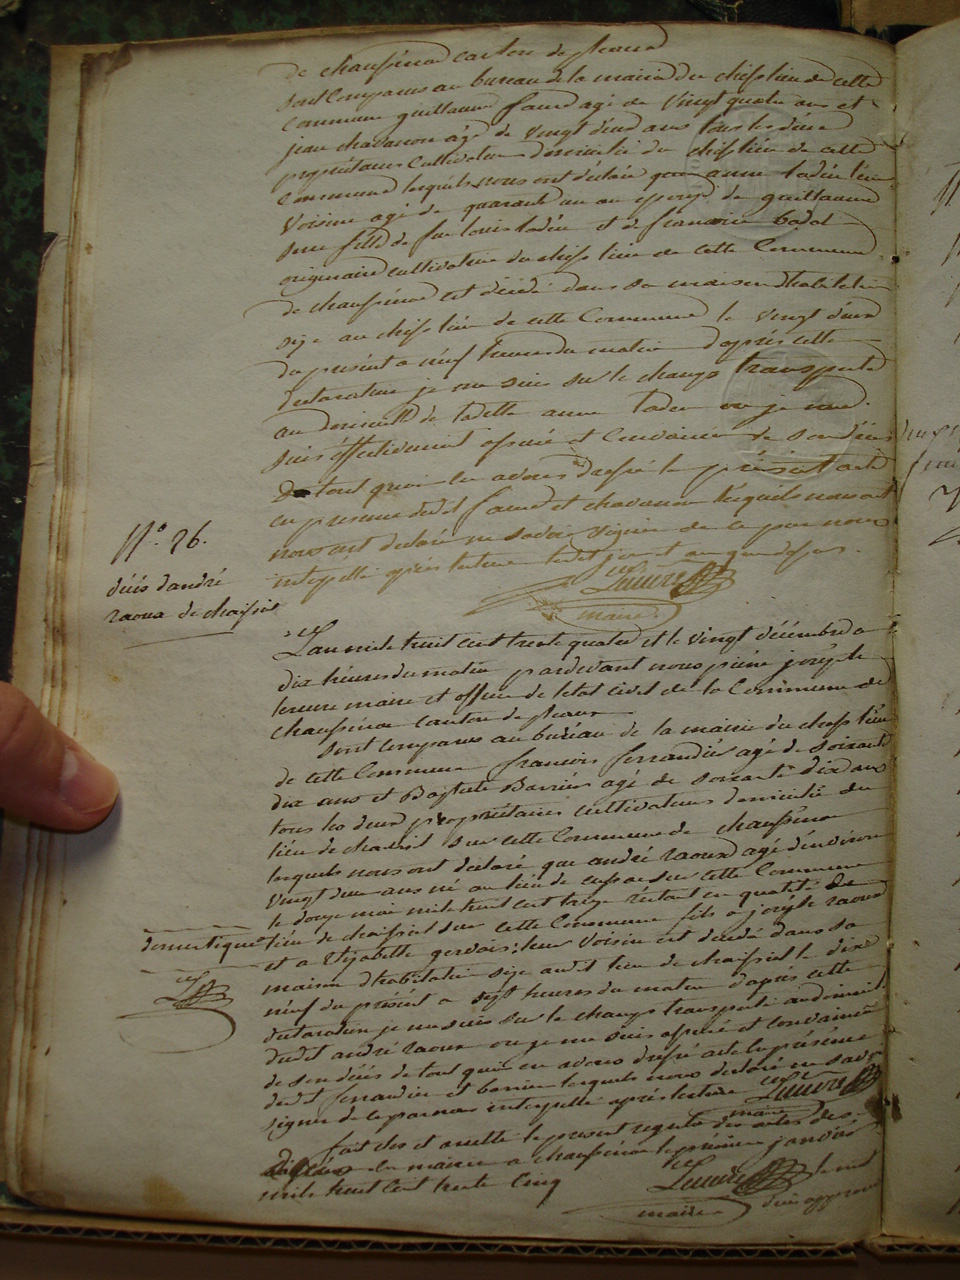 de chaussenac canton de pleaux
sont Comparus au bureau de la mairie du chef lieu de cette
Commune guillaume faure agé de vingt quatre ans et
jean chavanon agé de vingt deux ans tous les deux
propriétaires Cultivateurs domiciliés du chef lieu de cette
Commune lesquels nous ont déclaré que anne
Voisine agé de quarante un an epouse de guillaume
fille de feu louis et de francoise
originaire cultivateur du chef lieu de cette Commune
de chaussenac est décédé dans sa maison d'habitation
size au chef lieu de cette Commune le vingt deux
du présent a neuf heures du matin d'après cette
déclaration je me suis sur le champs transporté
au domicille de ladite anne ou je me
suis éffectivement assuré et Convaincu de son décés
De tout quoi en avons dressé le présent acte
en presence desdit faure et chavanon lesquels
nous ont déclaré ne savoir signer de ce par nous
interpellé après lecture ledit jour et an que dessus.
maire
N.° 26.
décés d'andré
raoux de
L'an mile huit cent trente quatre et le vingt décémbre a
dix heures du matin pardevant nous pierre joseph
maire et officier de l'etat civil de la Commune de
chaussenac canton de pleaux
sont Comparus au bureau de la mairie du chef lieu
de cette Commune francois ferrandier agé de soixante
dix ans et Baptiste Barrier agé de soixante dix ans
tous les deux propriétaires cultivateurs domiciliés du
lieu de sur cette Commune de chaussenac
lesquels nous ont declaré que andré raoux agé d'environ
vingt deux ans né au lieu de sur cette Commune
le douze mai mile huit cent treize restant en qualité de
domestique lieu de sur cette Commune fils a joseph raoux
et a Elizabette gervais; leur Voisin est decedé dans sa
maison d'habitation size audit lieu de le dix
neuf du présent a sept heures du matin d'après cette
déclaration je me suis sur le champs transporté au domicille
dudit andré raoux ou je me suis assuré et convaincu
de son décés de tout quoi en avons dressé acte en présence
desdit ferrandier et barrier lesquels nous déclaré ne savoir
signer de ce par nous interpellé après lecture
maire
fait clos et arretté le present registre des actes des
décés en mairie a chaussenac le premier janvier
mile huit cent trente cinq
maire